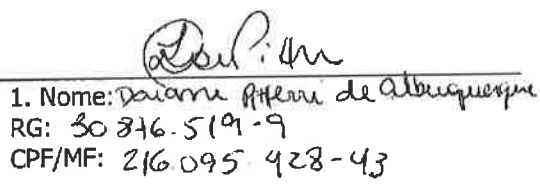 1. Nome: Daiane de Albuquerque
RG: 30 876.519-9
CPF/MF: 216.095 928-43